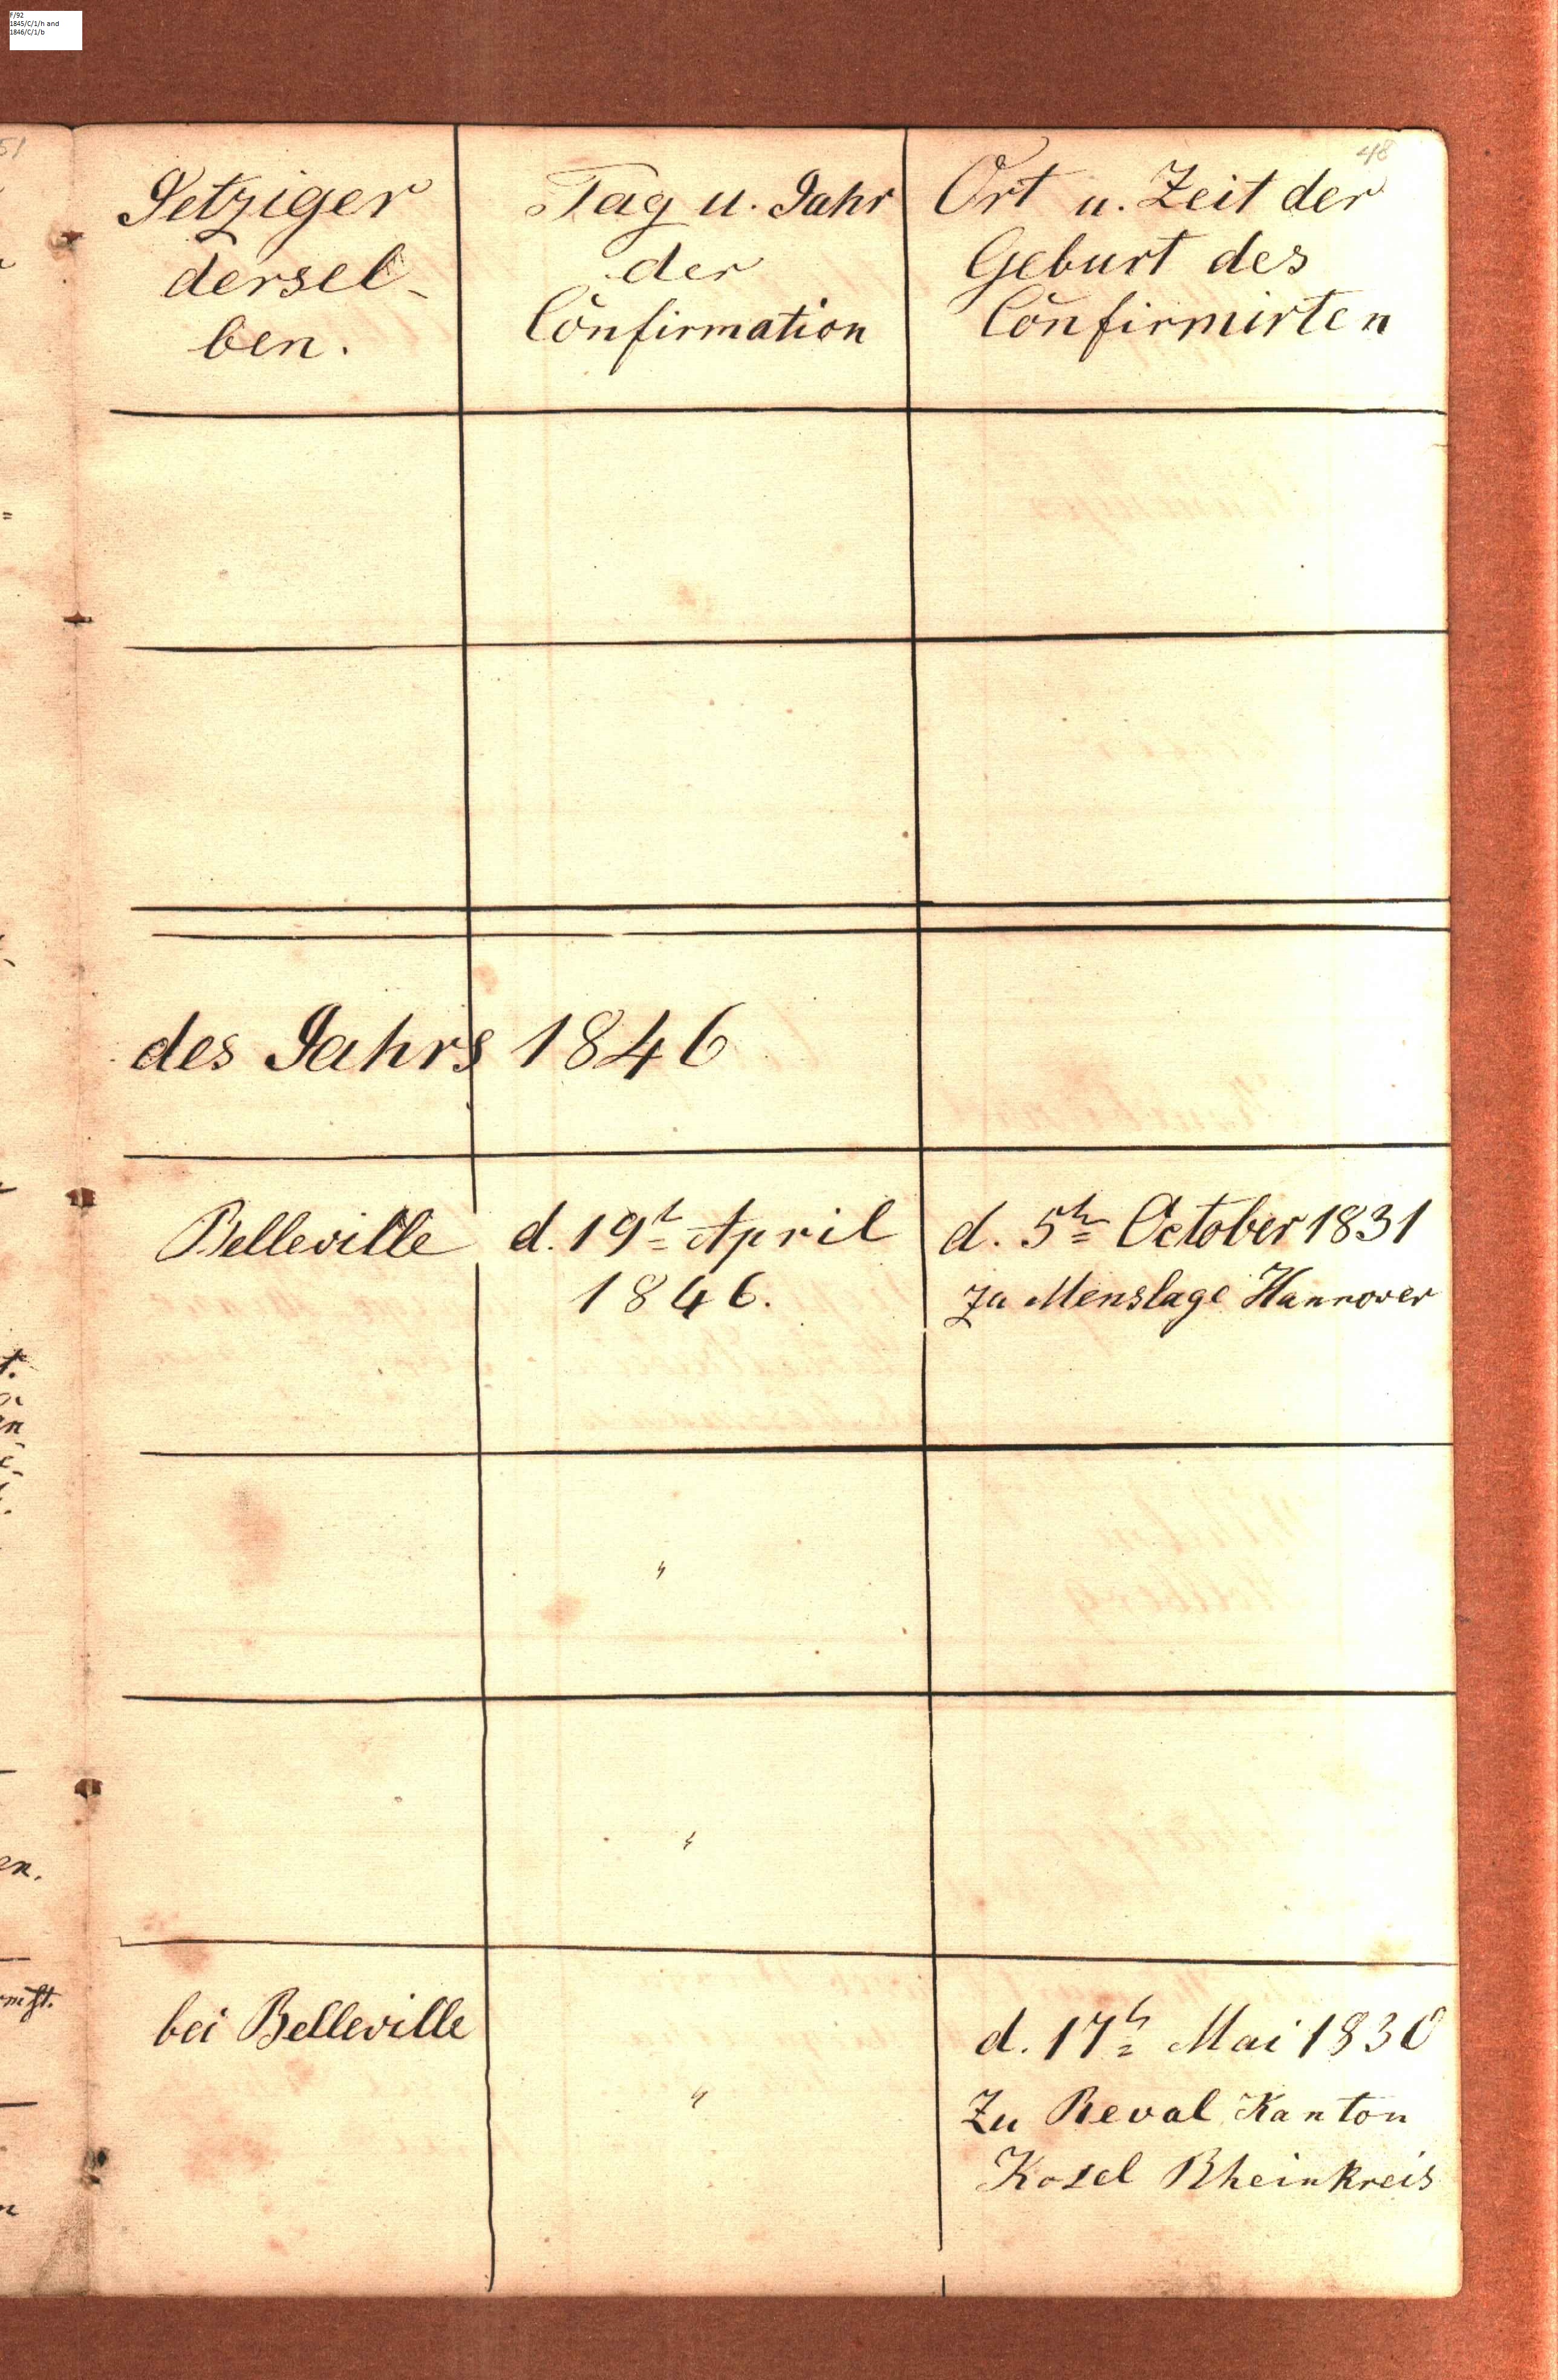 F/92
1845/C/1/h and
1846/C/1/b
51
48
Jetziger
dersel-
ben.
Tag u. Jahr
der
Confirmation
Ort u. Zeit der
Geburt des
Confirmirten
des Jahrs 1846
Belleville
d. 19t April
1846.
d. 5tn October 1831
zu Menslage Hannover
"
"
bei Belleville
"
d. 17t Mai 1830
Zu Reval Kanton
Kosel Rheinkreis